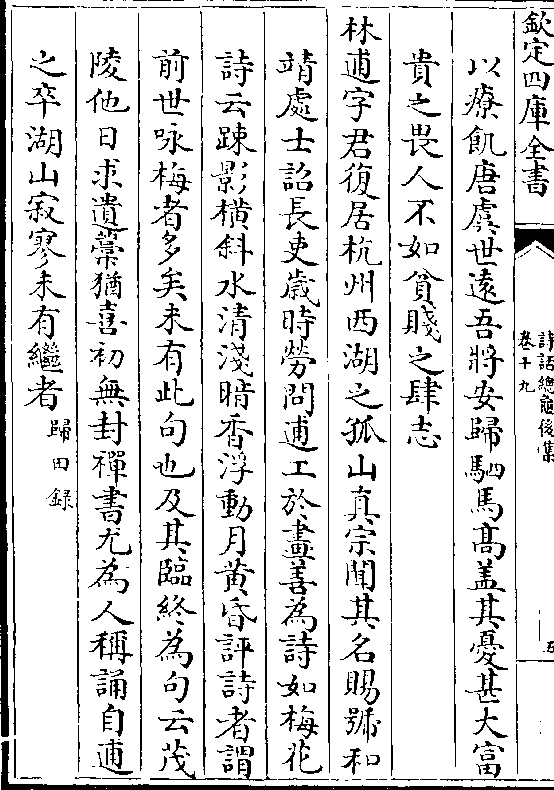 欽定四庫全書
詩話總龜後集
卷十九
五
以療飢唐虞世遠吾將安歸駟馬髙盖其憂甚大富
貴之畏人不如貧賤之肆志
林逋字君復居杭州西湖之孤山真宗聞其名賜號和
靖處士詔長吏歲時勞問逋工於畫善為詩如梅花
詩云疎影橫斜水清淺暗香浮動月黄昏評詩者謂
前世咏梅者多矣未有此句也及其臨終為句云茂
陵他日求遺藁猶喜初無封禪書尤為人稱誦自逋
之卒湖山寂寥未有繼者歸田錄